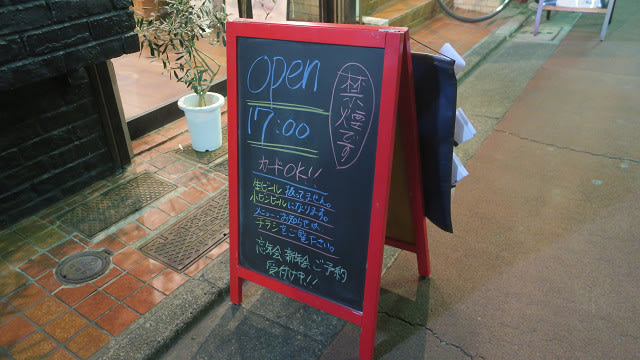 open
17:00
禁煙です
カードOK!!
生ビール扱ってません。
小ビンビールになります。
メニュー・お知らせは、
チラシをご覧下さい。
忘年会 新年会 ご予約
受付け中!!